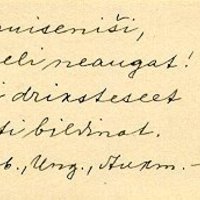 uiseniši,
eli neaugat!
i driksteseet
ti bildinat.
b., Ung., Aukm. –